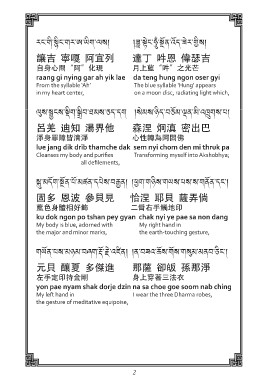 རང་གི་སྙིང་གར་ཨ་ཡིག་ལས། །ཟླ་སྟེང་ཧཱུྃ་སྔོན་འོད་ཟེར་གྱིས།
讓吉 寧嘎 阿宜列 達丁 吽恩 偉瑟吉
自身心間“阿”化現 月上藍“吽”之光芒
raang gi nying gar ah yik lae da teng hung ngon oser gyi
From the syllable 'Ah' The blue syllable 'Hung' appears
in my heart center, on a moon disc, radiating light which,
ལུས་སྦྱངས་སྒྲིབ་ཐམས་ཅད་དག །སེམས་ཉིད་བཅོམ་ལྡན་མི་འཁྲུགས་པ།
呂羌 迪知 湯界他 森涅 炯滇 密出巴
淨身罪障皆清淨
lue jang dik drib thamche dak sem nyi chom den mi thruk pa
Cleanses my body and purifies Transforming myself into Akshobhya;
all defilements,
སྐུ་མདོག་སྔོན་པོ་མཚན་དཔེས་བརྒྱན། །ཕྱག་གཉིས་གཡས་པས་ས་གནོན་དང་།
固多 恩波 參貝見 恰涅 耶貝 薩弄倘
藍色身體相好飾 二臂右手觸地印
ku dok ngon po tshan pey gyan chak nyi ye pae sa non dang
My body is blue, adorned with My right hand in
the major and minor marks, the earth-touching gesture,
གཡོན་པས་མཉམ་བཞག་རྡོ་རྗེ་འཛིན། །ན་བཟའ་ཆོས་གོས་གསུམ་མནབ་ཅིང་།
元貝 釀夏 多傑進 那薩 卻皈 孫那淨
左手定印持金剛 身上穿著三法衣
yon pae nyam shak dorje dzin na sa choe goe soom nab ching
My left hand in I wear the three Dharma robes,
the gesture of meditative equipoise,
2